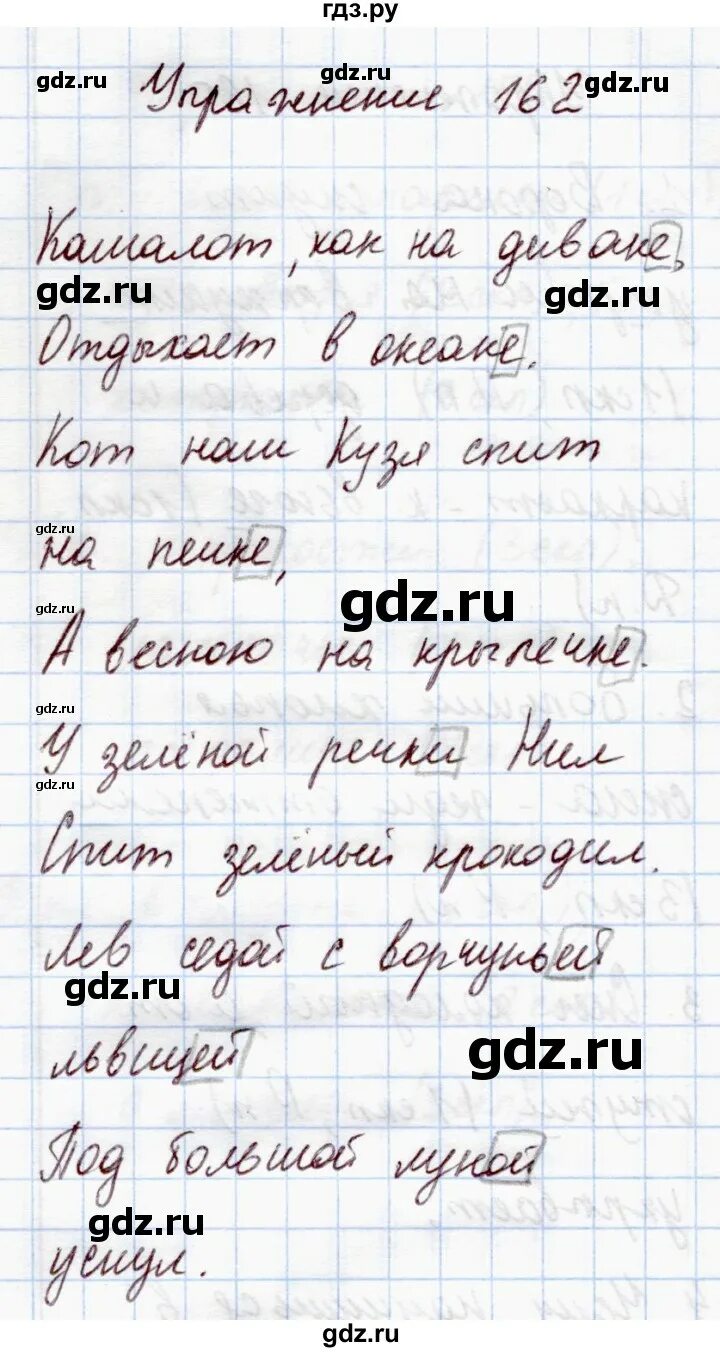 гдз.ру
gdz.ru gdz.ru gdz.ru
Упражнение 162
Кашалот, как на диване,
gdz.ru gdz.ru
Отдыхает в океане.
Кот наш Кузя спит
gdz.ru
на печке,
gdz.ru gdz.ru
А весною на крылечке.
gdz.ru
У зелёной речки Нил
gdz.ru
Спит зелёный крокодил.
Лев седой с ворчуньей
gdz.ru gdz.ru
львицей
Под большой луной
gdz.ru
уснул.
gdz.ru